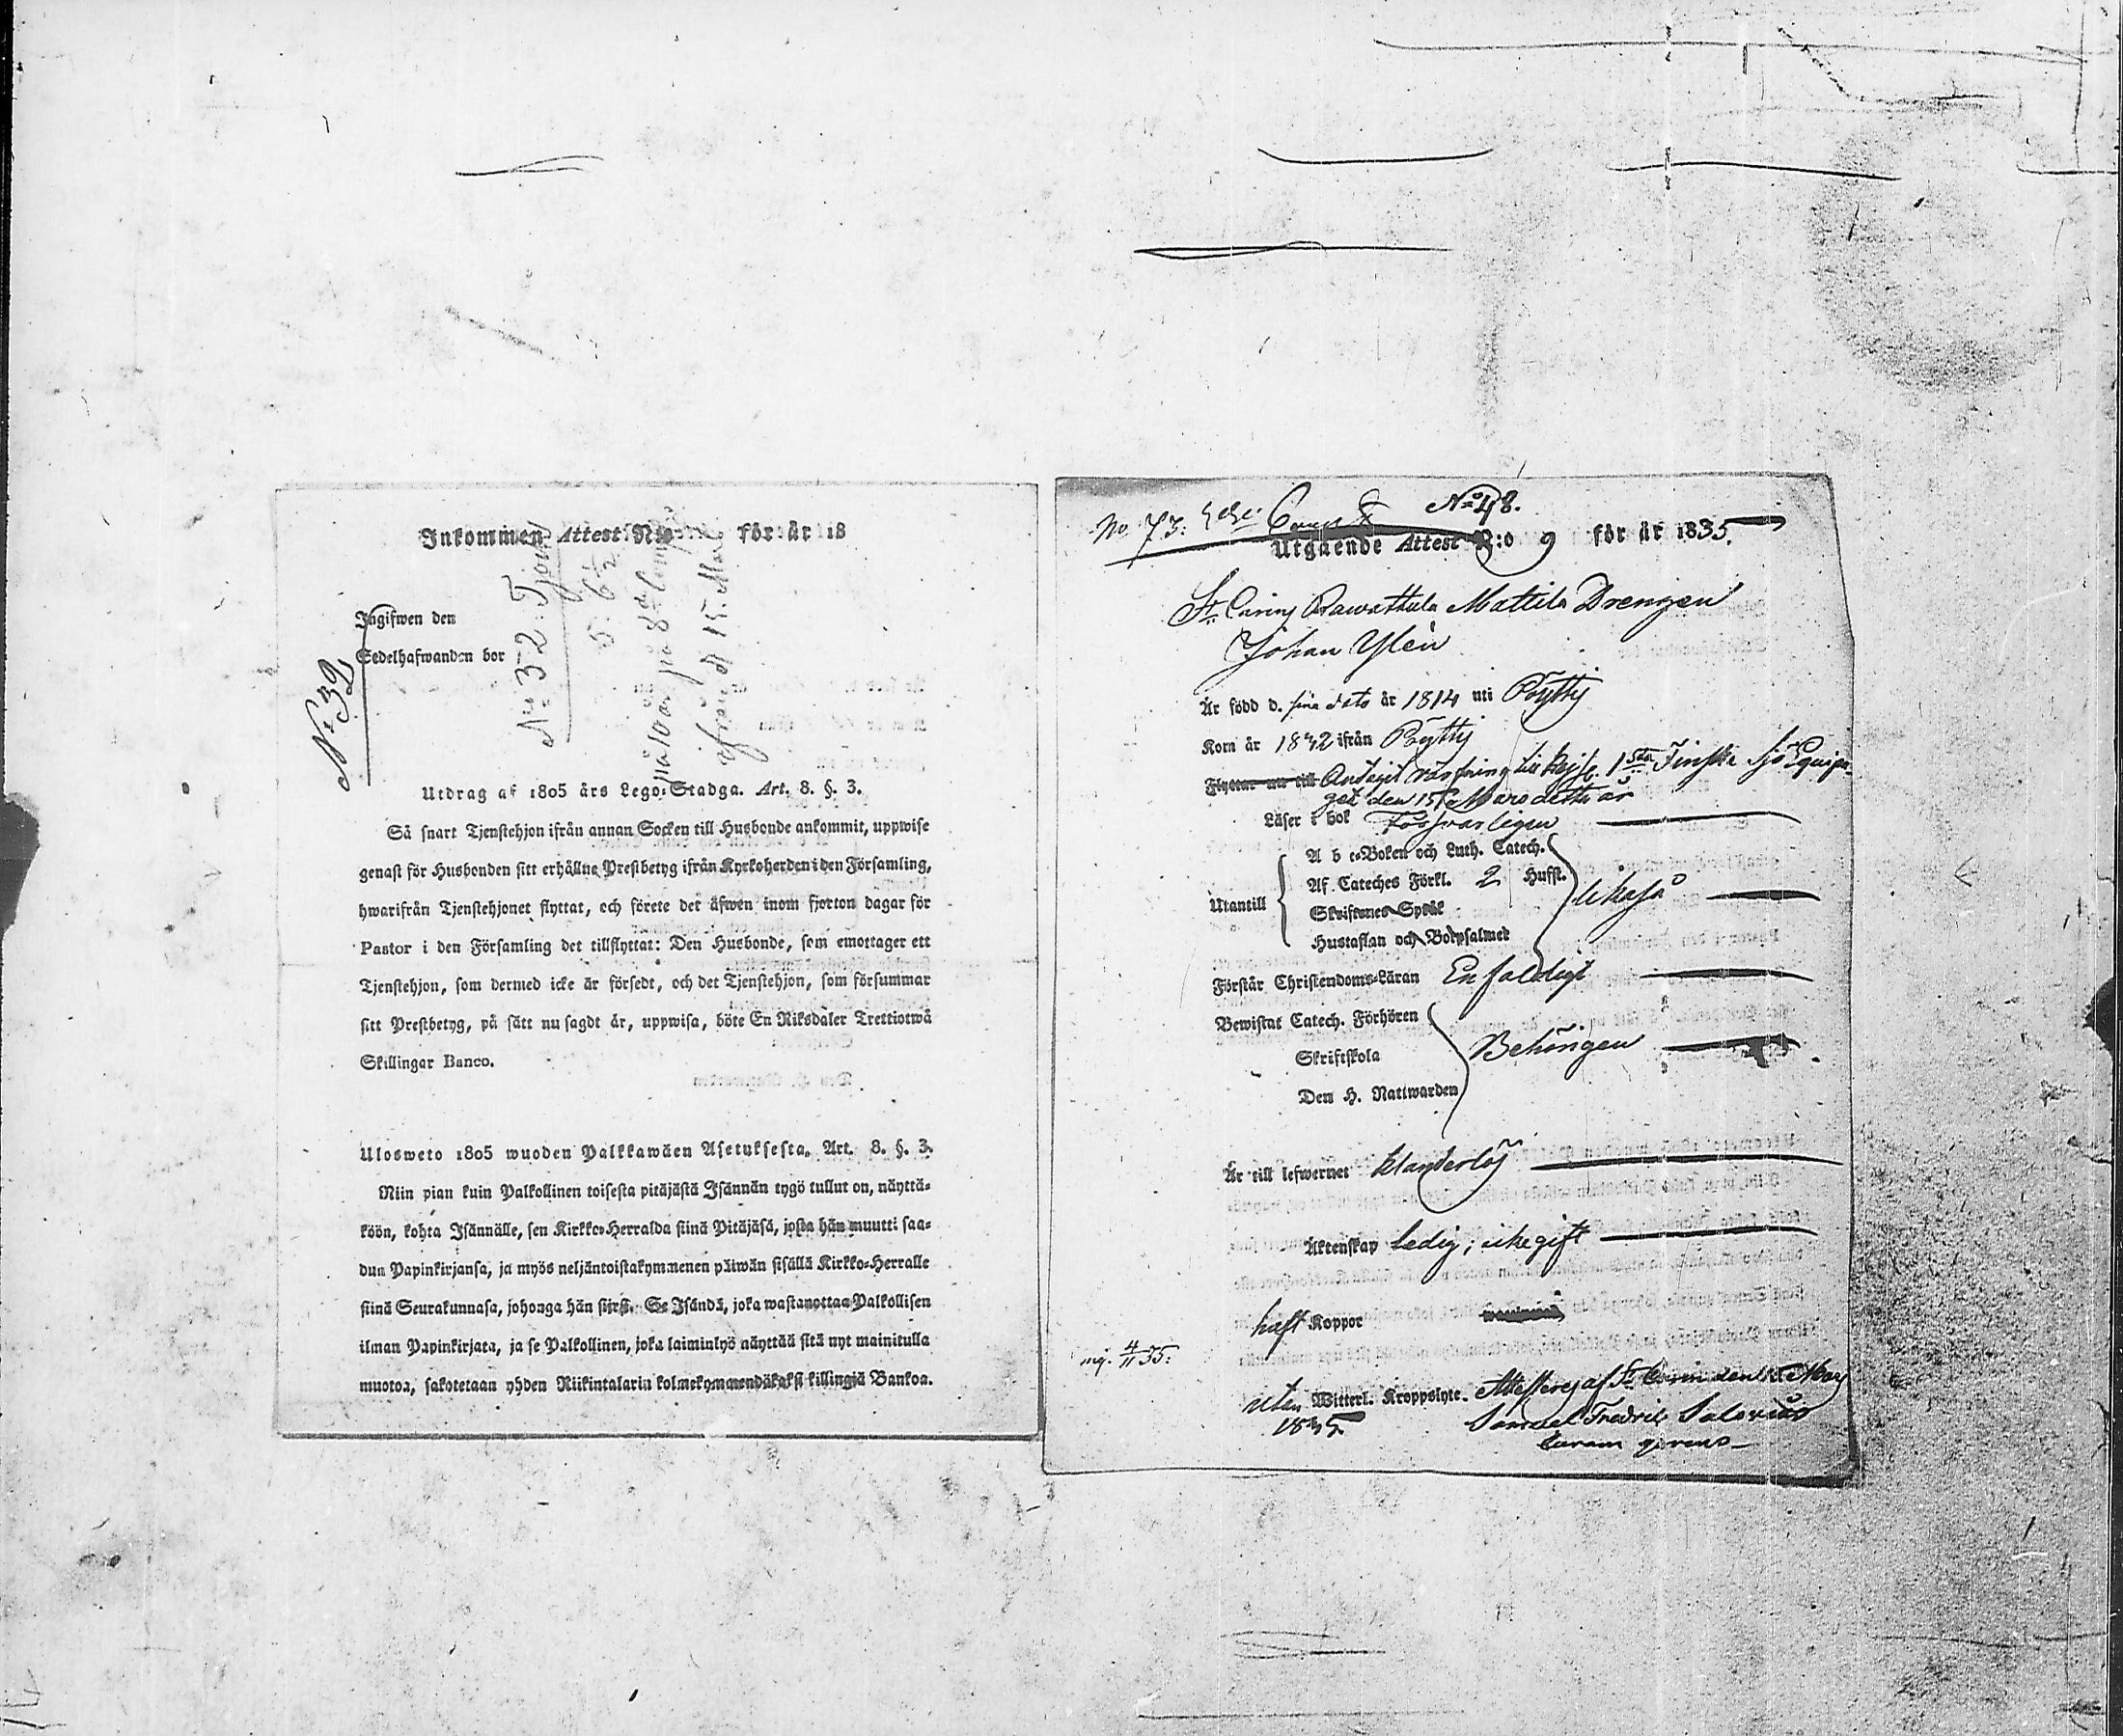 Inkommen Attest N:o för år 18
Ingifwen den
Sedelhafwanden bor
No 32
No 32
5: 6 1/2
på 10 år på 8
ifrån d 15. Mars
Utdrag af 1805 års Lego-Stadga. Art. 8. §. 3.
Så snart Tjenstehjon ifrån annan Socken till Husbonde ankommit, uppwise
genast för Husbonden sitt erhållne Prestbetyg ifrån Kyrkoherden i den Församling,
hwarifrån Tjenstehjonet flyttat, och förete det äfwen inom fjorton dagar för
Pastor i den Församling det tillflyttat: Den Husbonde, som emottager ett
Tjenstehjon, som dermed icke är försedt, och det Tjenstehjon, som försummar
sitt Prestbetyg, på sätt nu sagdt är, uppwisa, böte En Riksdaler Trettiotwå
Skillingar Banco.
Ulosweto 1805 wuoden Palkkawäen Asetuksesta. Art. 8. §. 3.
Niin pian kuin Palkollinen toisesta pitäjästä Isännän tygö tullut on, näyttä-
köön, kohta Isännälle, sen Kirkko-Herralda siinä Pitäjäsä, josta hän muutti saa-
dun Papinkirjansa, ja myös neljäntoistakymmenen päiwän sisällä Kirkko-Herralle
siinä Seurakunnasa, johonga hän siirsi. Se Isändä, joka wastanottaa Palkollisen
ilman Papinkirjata, ja se Palkollinen, joka laiminlyö näyttää sitä nyt mainitulla
muotoa, sakotetaan yhden Riikintalarin kolmekymmendäkaksi killingiä Bankoa.
No 73: No 48.
Utgående Attest N:o 9 för år 1835.
St. Carins Rawattula Mattila Drengen
Johan Ylén
Är född d. sine dato år 1814 uti Pöytyj
Kom år 1832 ifrån Pöytyj
Flyttar nu till Antagit värfning till Kejs. 1sta Finska Sjö Equipa-
get den 15 Mars detta år
Läser i bok Försvarligen
A b c-Boken och Luth. Catech.
Af Cateches Förkl. 2 Hufst.
Utantill likaså
Skriftenes Språk
Hustaflan och Botpsalmer
Förstår Christendoms-Läran Enfaldigt
Bewistat Catech. Förhören
Skriftskola Behörigen
Den H. Nattwarden
Är till lefwernet klanderlös
Äktenskap ledig; icke gift
haft Koppor
4/11 35:
utan Witterl. Kroppslyte. Attesteras af St. Carin den 15 Mars
1835 Samuel Fredric Salovius
Curam gerens